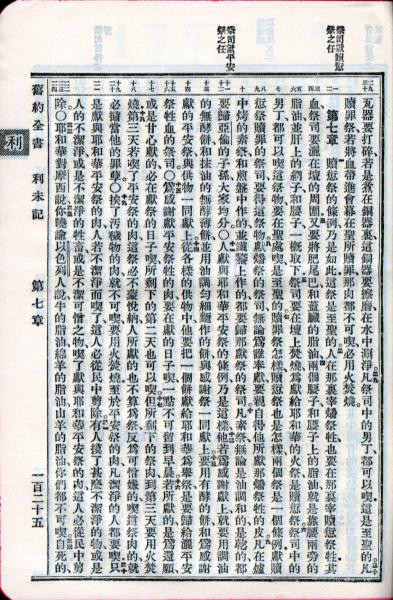 祭司獻贖愆祭之任
祭司獻平安祭之任
瓦器要打碎若是煮在銅器裏這銅器要擦磨在水中涮淨凡祭司中的男丁都可以喫這是至聖的凡
贖罪祭若將血帶進會幕在聖所贖罪那肉都不可喫必用火焚燒
第七章 贖愆祭的條例乃是如此這祭是至聖的人在那裏宰燔祭牲也要在那裏宰贖愆祭牲其
血祭司要灑在壇的周圍又要將肥尾巴和蓋臟的脂油兩個腰子和腰子上的脂油就是靠腰兩旁的
脂油並肝上的網子和腰子一概取下祭司要在壇上焚燒爲獻給耶和華的火祭是贖愆祭祭司中的
男丁都可以喫這祭物要在聖處喫是至聖的贖罪祭怎樣贖愆祭也是怎樣兩個祭是一個條例獻贖
愆祭贖罪的祭司要得這祭物獻燔祭的祭司無論爲誰奉獻要親自得他所獻那燔祭牲的皮凡在爐
中烤的素祭和煎盤中作的並鐵鏊上作的都要歸那獻祭的祭司凡素祭無論是油調和的是乾的都
要歸亞倫的子孫大家均分人獻與耶和華平安祭的條例乃是這樣他若爲感謝獻上就要用調油
的無酵餅和抹油的無酵薄餅並用油調勻細麵作的餅與感謝祭一同獻上要用有酵的餅和爲感謝
獻的平安祭與供物一同獻上從各樣的供物中他要把一個餅獻給耶和華爲舉祭是要歸給灑平安
祭牲血的祭司〇爲感謝獻平安祭牲的肉要在獻的日子喫一點不可留到早晨若所獻的是爲還願
或是甘心獻的必在獻祭的日子喫所剩下的第二天也可以喫但所剩下的祭肉到第三天要用火焚
燒第三天若喫了平安祭的肉這祭必不蒙悅納人所獻的也不算爲祭反爲可憎嫌的喫這祭肉的就
必擔當他的罪孽〇挨了污穢物的肉就不可喫要用火焚燒至於平安祭的肉凡潔淨的人都要喫只
是獻與耶和華平安祭的肉人若不潔淨而喫了這人必從民中剪除有人摸了甚麽不潔淨的物或是
人的不潔淨或是不潔淨的牲畜或是不潔可憎之物喫了獻與耶和華平安祭的肉這人必從民中剪
除〇耶和華對摩西說你曉諭以色列人說牛的脂油綿羊的脂油山羊的脂油你們都不可喫自死的
舊約全書 利未記 第七章 一百二十五
利